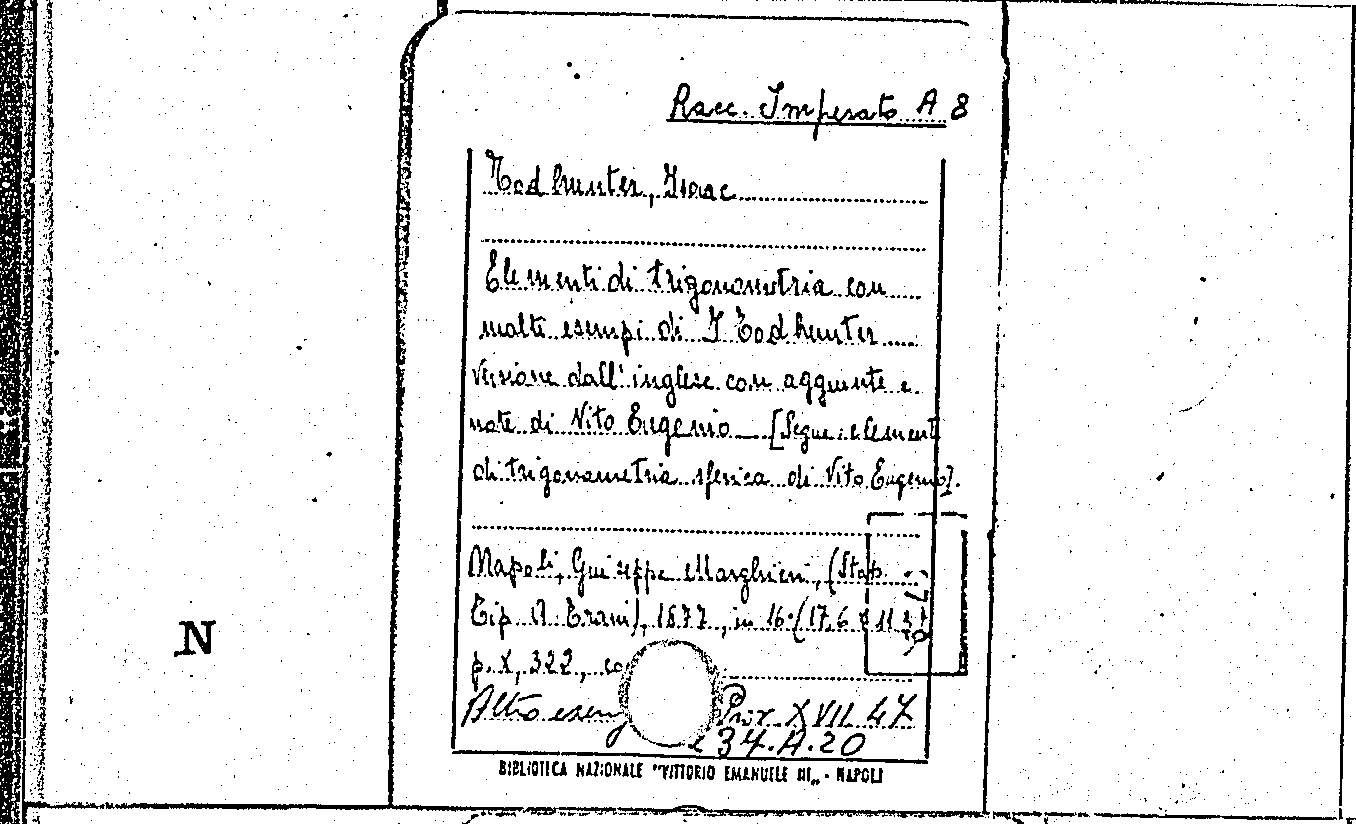 Racc. Imperato A 8
Todhunter, Isaac
Elementi di trigonometria con
molti esempi di I Todhunter
versione dall'inglese con aggiunte e
note di Vito Eugenio [Segue: elementi
di trigonometria sferica di Vito Eugenio].
Napoli, Giuseppe Marghieri, (Stab.
Tip. A. Trani), 1877, in 16° (17,6 x 11,3)
N
p. X, 322, co
Altro esemp Prov. XVII 47
e 34.A.20
BIBLIOTECA NAZIONALE "VITTORIO EMANUELE III" - NAPOLI